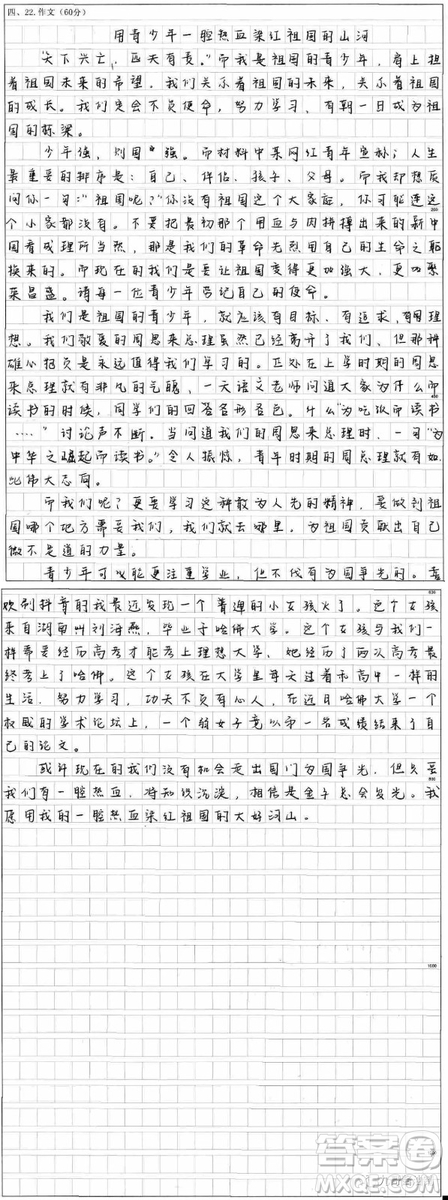 四、22.作文(60分)
用青少年一腔热血染红祖国的山河
"天下兴亡,匹夫有责。"而我是祖国的青少年,肩上担
着祖国未来的希望。我们关乎着祖国的未来,关乎着祖国
的成长。我们定会不负使命,努力学习、有朝一日成为祖
国的栋梁。
少年强,则国强。而材料中某网红青年宣称:人生
最重要的排序是:自己、伴侣、孩子、父母。而我却想反
问你一句:"祖国呢?"你没有祖国这个大家庭,你可能连这
个小家都没有。不要把最初那个用血与肉拼搏出来的新中
国看成理所当然,那是我们的革命先烈用自己的生命之躯
换来的。而现在的我们是要让祖国变得更加强大,更加繁
荣昌盛。请每一位青少年劳记自己的使命。
我们是祖国的青少年,就应该有目标、有追求,有理
想。我们敬爱的周恩来总理虽然已经离开了我们、但那种
雄心抱负是永远值得我们学习的。正处在上学时期的周恩
来总理就有非凡的气魄、一天语文老师问道大家为什么而
读书的时候,同学们的回答各形各色。什么"为吃饭而读书
……"讨论声不断。当问道我们的周恩来总理时、一句"为
中华之崛起而读书。"令人振惊,青年时期的周总理就有如
此伟大志向。
而我们呢?更要学习这种敢为人先的精神,要做到祖
国哪个地方需要我们,我们就去哪里。为祖国贡献出自己
微不足道的力量。
青少年可以能更注重学业,但不代有为国争光的。喜
欢刷抖音的我最近发现一个普通的小女孩火了。这个女孩
来自湖南叫刘海燕,毕业于哈佛大学。这个女孩与我们一
样需要经历高考才能考上理想大学、她经历了两次高考最
终考上了哈佛。这个女孩在大学里每天过着和高中一样的
生活,努力学习,功夫不负有心人,在近日哈佛大学一个
权威的学术论坛上,一个弱女子竟以第一名成绩结束了自
己的论文。
或许现在的我们没有机会走出国门为国争光,但只要
我们有一腔热血,将知识沉淀,相信是金子总会发光。我
愿用我的一腔热血染红祖国的大好河山。
答案圈
MXQE.COM